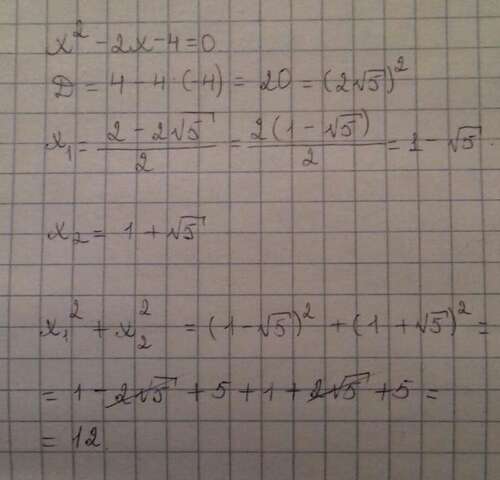 x² - 2x - 4 = 0
D = 4 - 4 · (-4) = 20 = (2√5)²
x₁ = (2 - 2√5)/2 = (2(1 - √5))/2 = 1 - √5.
x₂ = 1 + √5
x₁² + x₂² = (1 - √5)² + (1 + √5)² =
= 1 - 2√5 + 5 + 1 + 2√5 + 5 =
= 12.